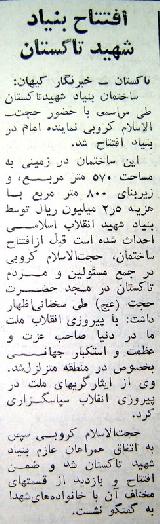 افتتاح بنیاد
شهید تاکستان
تاکستان ـ خبرنگار کیهان:
ساختمان بنیاد شهیدتاکستان
طی مراسمی با حضور حجت
الاسلام کروبی نماینده امام در
بنیاد افتتاح شد.
این ساختمان در زمینی به
مساحت ۵۷۰ متر مربع، و
زیربنای ۸۰۰ متر مربع با
هزینه ۵ر۲ میلیون ریال توسط
بنیاد شهید انقلاب اسلامی
احداث شده است قبل ازافتتاح
ساختمان، حجت‌الاسلام کروبی
در جمع مسئولین و مردم
تاکستان در مسجد حضرت
حجت (عج) طی سخنانی‌اظهار
داشت: با پیروزی انقلاب ملت
ما در دنیا صاحب عزت و
عظمت و استکبار جهانی
بخصوص در منطقه متزلزل‌شد.
وی از ایثارگریهای ملت در
پیروزی انقلاب سپاسگزاری
کرد.
حجت‌الاسلام کروبی سپس
به اتفاق همراهان عازم بنیاد
شهید تاکستان شد و ضمن
افتتاح و بازدید از قسمتهای
مختلف آن با خانواده‌های‌شهدا
به گفتگو نشست.